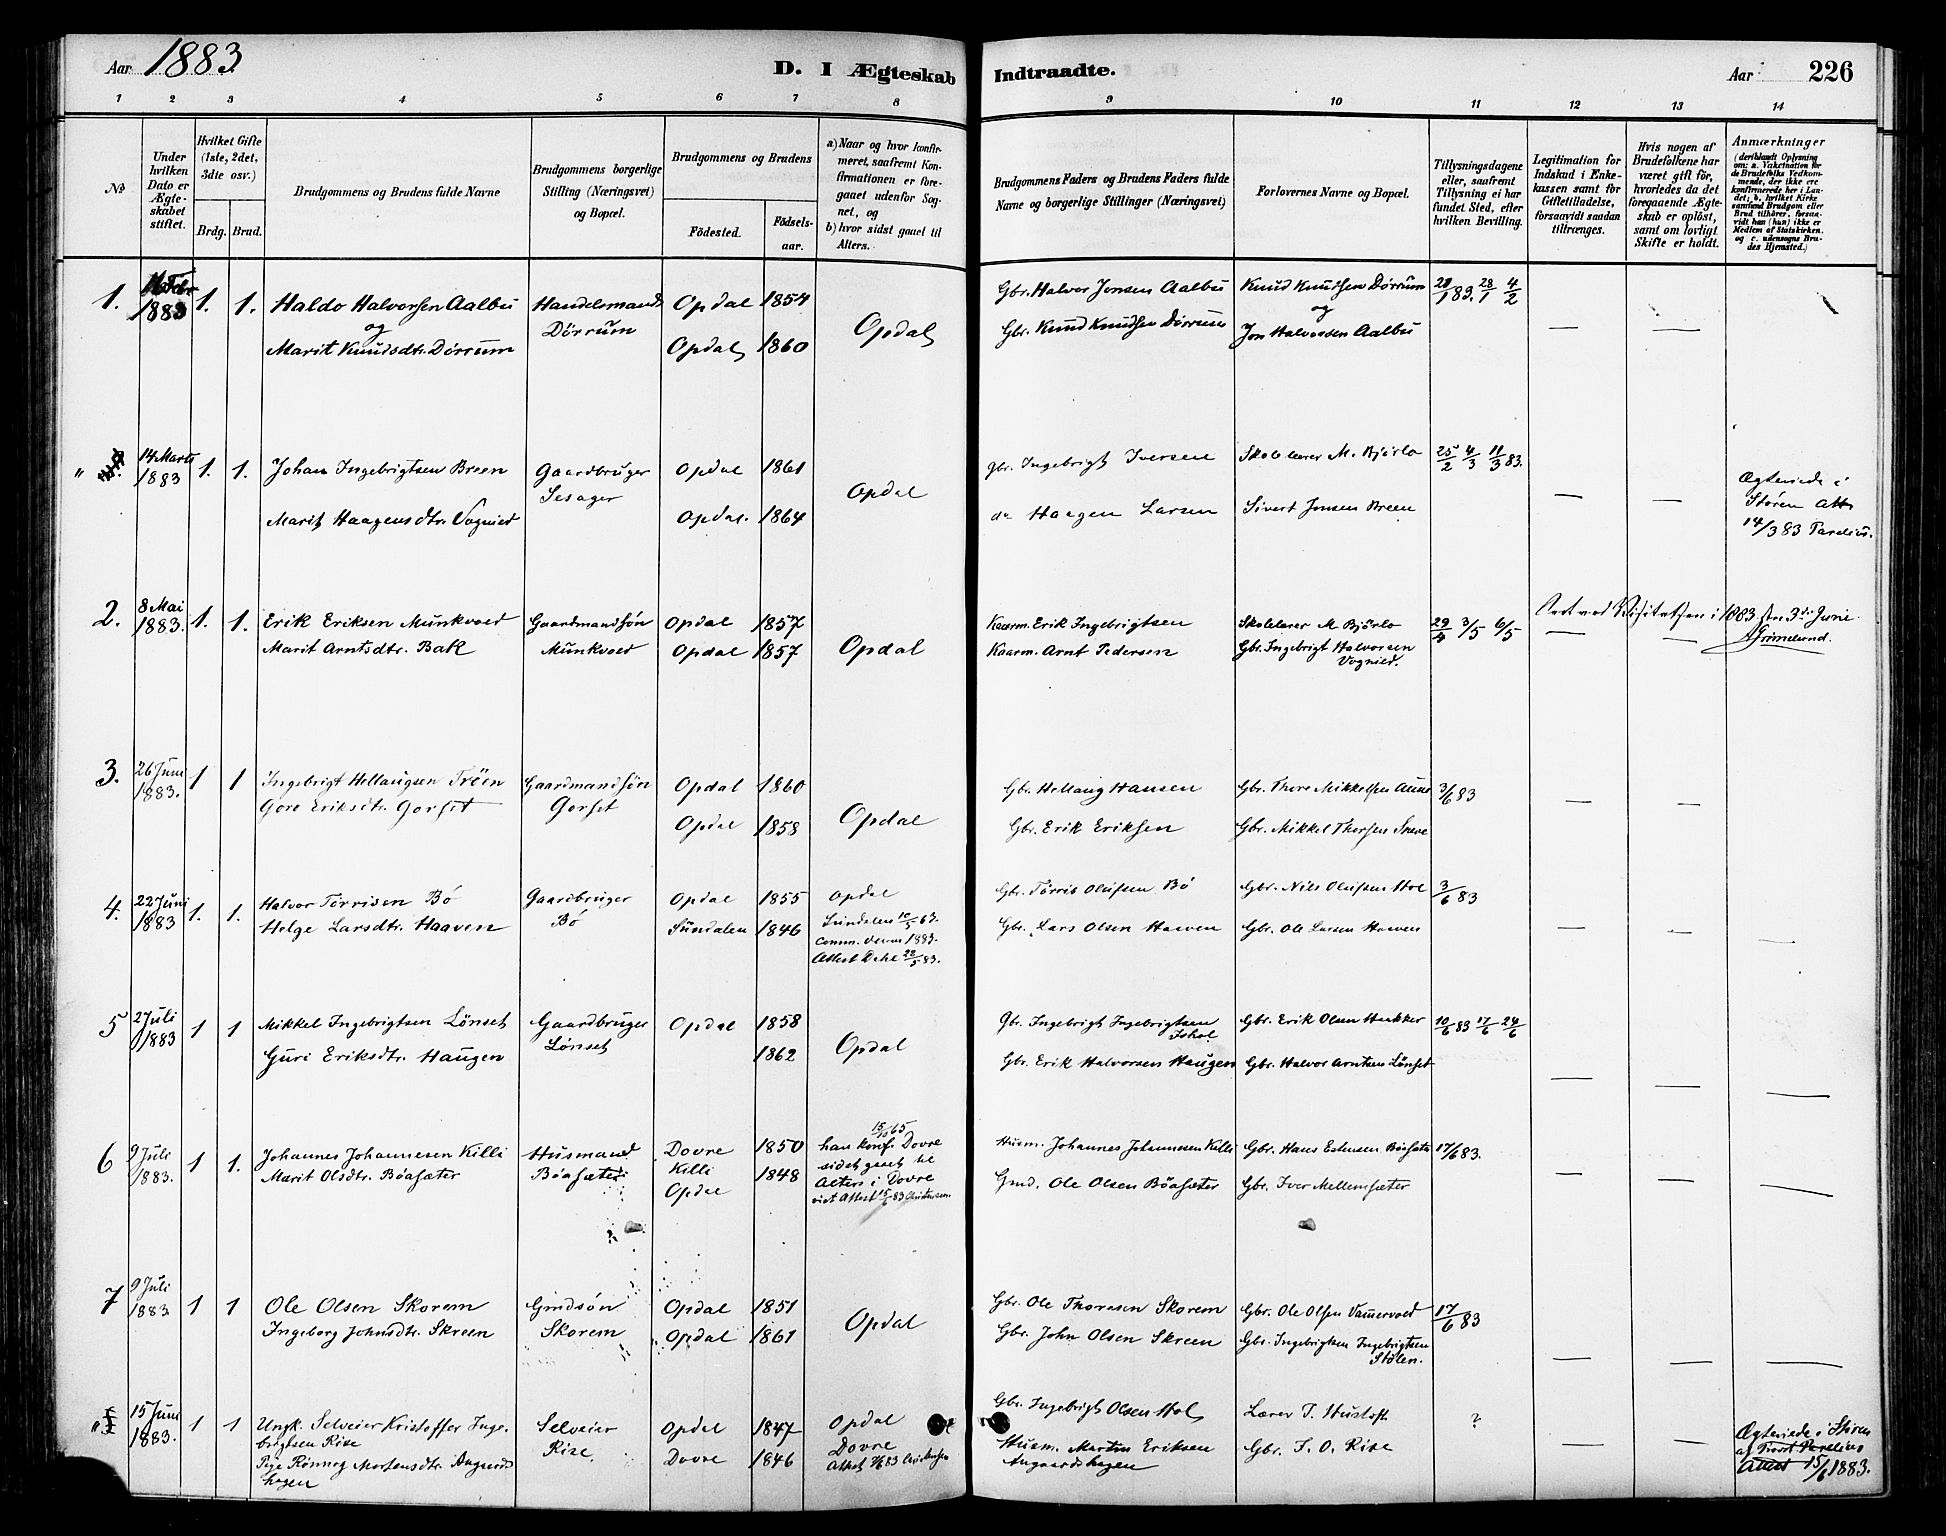 Aar 1883.
D. I Ægteskab
Indtraadte.
Aar
226
1 2 3 4 5 6 7 8
9 10 11 12 13 14
No
Under hvilken Dato er Ægteskabet stiftet.
Hvilket Gifte (1ste, 2det, 3die osv.)
Brdg. Brud.
Brudgommens og Brudens fulde Navne
Brudgommens borgerlige Stilling (Næringsvei) og Bopæl.
Brudgommens og Brudens
Fødested.
Fødselsaar.
a) Naar og hvor konfirmeret, saafremt Konfirmationen er foregaaet udenfor Sognet, og
b) hvor sidst gaaet til Alters.
Brudgommens Faders og Brudens Faders fulde Navne og borgerlige Stillinger (Næringsvei)
Forlovernes Navne og Bopæl.
Tillysningsdagene eller, saafremt Tillysning ei har fundet Sted, efter hvilken Bevilling.
Legitimation for Indskud i Enkekassen samt for Giftetilladelse, forsaavidt saadan tiltrænges.
Hvis nogen af Brudefolkene har været gift før, hvorledes da det foregaaende Ægteskab er opløst, samt om lovligt Skifte er holdt.
Anmærkninger
(deriblandt Oplysning om: a. Vakcination for de Brudefolks Vedkommende, der ikke ere konfirmerede her i Landet; b. hvilket Kirkesamfund Brudgom eller Brud tilhører, forsaavidt han (hun) ikke er Medlem af Statskirken. og c. udensogns Brudes Hjemsted.)
1. 1883 1. 1. Haldo Halvorsen Aalbu Handelsmand Opdal 1854 Gbr. Halvor Jonsen Aalbu Knud Knudsen Dørrum 21/1 83. 28/1 4/2
og Dørrum Opdal Gbr. Knud Knudsen Dørrum og
Marit Knudsdtr. Dørrum Opdal 1860 Jon Halvorsen Aalbu
" 14 Marts 1883 1. 1. Johan Ingebrigtsen Breen Gaardbruger Opdal 1861 Gbr. Ingebrigt Iversen Skolelærer M. Bjørlo 25/2 4/3 11/3 83. Ægteviede i
Sesager Opdal Støren
Marit Haagensdtr. Vognild Opdal. 1864 do Haagen Larsen Sivert Jonsen Breen 14/3 83 Parelius.
2. 8 Mai 1883. 1. 1. Erik Eriksen Munkvold Gaardmandsøn Opdal 1857 Kaarm. Erik Ingebrigtsen Skolelærer M Bjørlo 29/4 3/5 6/5 Seet ved Visitatsen i 1883 den 3die Juni
Marit Arntsdtr. Bak Munkvold Opdal 1857 Opdal Kaarm. Arnt Pedersen Gbr. Ingebrigt Halvorsen Vognild. Grimelund.
3. 26 Juni 1883. 1 1 Ingebrigt Hellaugsen Trøen Gaardmandsøn Opdal 1860 Gbr. Hellaug Hansen Gbr. Thore Mikkelsen Aune 3/6 83
Gore Eriksdtr. Gorset Gorset Opdal 1858 Opdal Gbr. Erik Eriksen Gbr. Mikkel Thorsen Sneve
4. 22 Juni 1883 1. 1. Halvor Tørrisen Bø Gaardbruger Opdal 1855 Opdal Gbr. Tørris Olufsen Bø Gbr. Nils Olufsen Hol 3/6 83
Helge Larsdtr. Haaven Bø Sundalen 1846 Sundalen 63. Gbr. Lars Olsen Haaven Gbr. Ole Larsen Haaven
1883.
Attest 22/5 83.
5 2 Juli 1883 1 1 Mikkel Ingebrigtsen Lønset Gaardbruger Opdal 1858 Gbr. Ingebrigt Ingebrigtsen Gbr. Erik Olsen Hukker 10/6 83 17/6 24/6
Guri Eriksdtr. Haugen Lønset 1862 Opdal Gbr. Erik Halvorsen Haugen Gbr. Halvor Arntsen Lønset
6 9 Juli 1883. 1 1. Johannes Johannesen Killi Husmand Dovre Killi 1850 han konf. Dovre Husm. Johannes Johannesen Killi Gbr. Hans Estensen Böasæter 17/6 83.
Marit Olsdtr. Böasæter Böasæter Opdal 1848 sidst gaaet til Alters i Dovre Gmd. Ole Olsen Böasæter Gbr. Iver Mellemsæter
7 9 Juli 1883 1 1 Ole Olsen Skorem Gmdsøn Opdal 1851 Gbr. Ole Thoresen Skorem Gbr. Ole Olsen Vammervold 17/6 83
Ingeborg Johnsdtr. Skreen Skorem Opdal 1861 Opdal Gbr. John Olsen Skreen Gbr. Ingebrigtsen Ingebrigtsen Stølen.
" 15 Juni 1883. 1 1 Ungk. Selveier Kristoffer Ingebrigtsen Rise Selveier Opdal 1847 Opdal Gbr. Ingebrigt Olsen Hol Lærer T. Hustoft ? Ægteviede i Støren
Pige Rönnog Mortensdtr. Angaardshagen Rise. Dovre 1846 Dovre Husm. Martin Eriksen Angaardshagen Gbr. J. O. Rise af Parelius
15/6 1883.